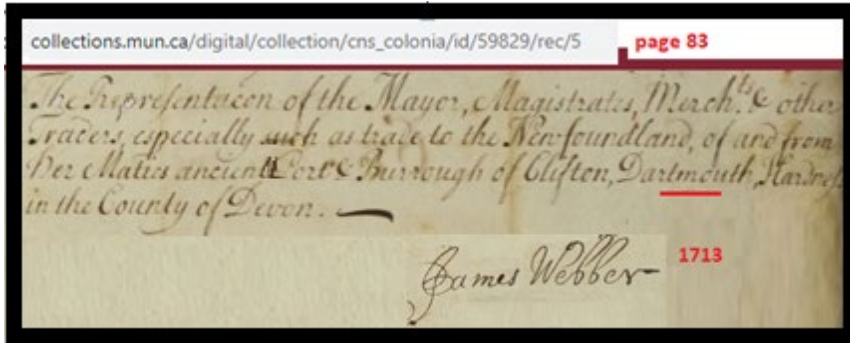 collections.mun.ca/digital/collection/cns_colonia/id/59829/rec/5 page 83
The Representacon of the Mayor, Magistrates, Merch.ts & other
Traders, especially such as trade to the Newfoundland, of and from
her Maties ancient Port & Burrough of Clifton, Dartmouth, Hardness
in the County of Devon.
James Webber 1713